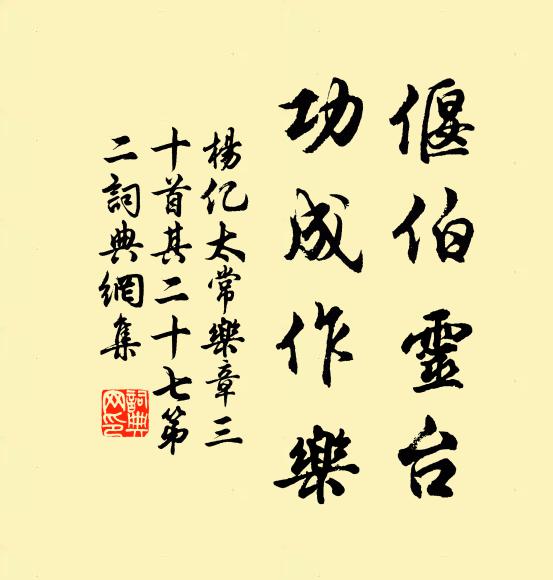 偃伯靈台
功成作樂
楊亿太常樂章三
十首其二十七第
二詞典網集
詞典
网印